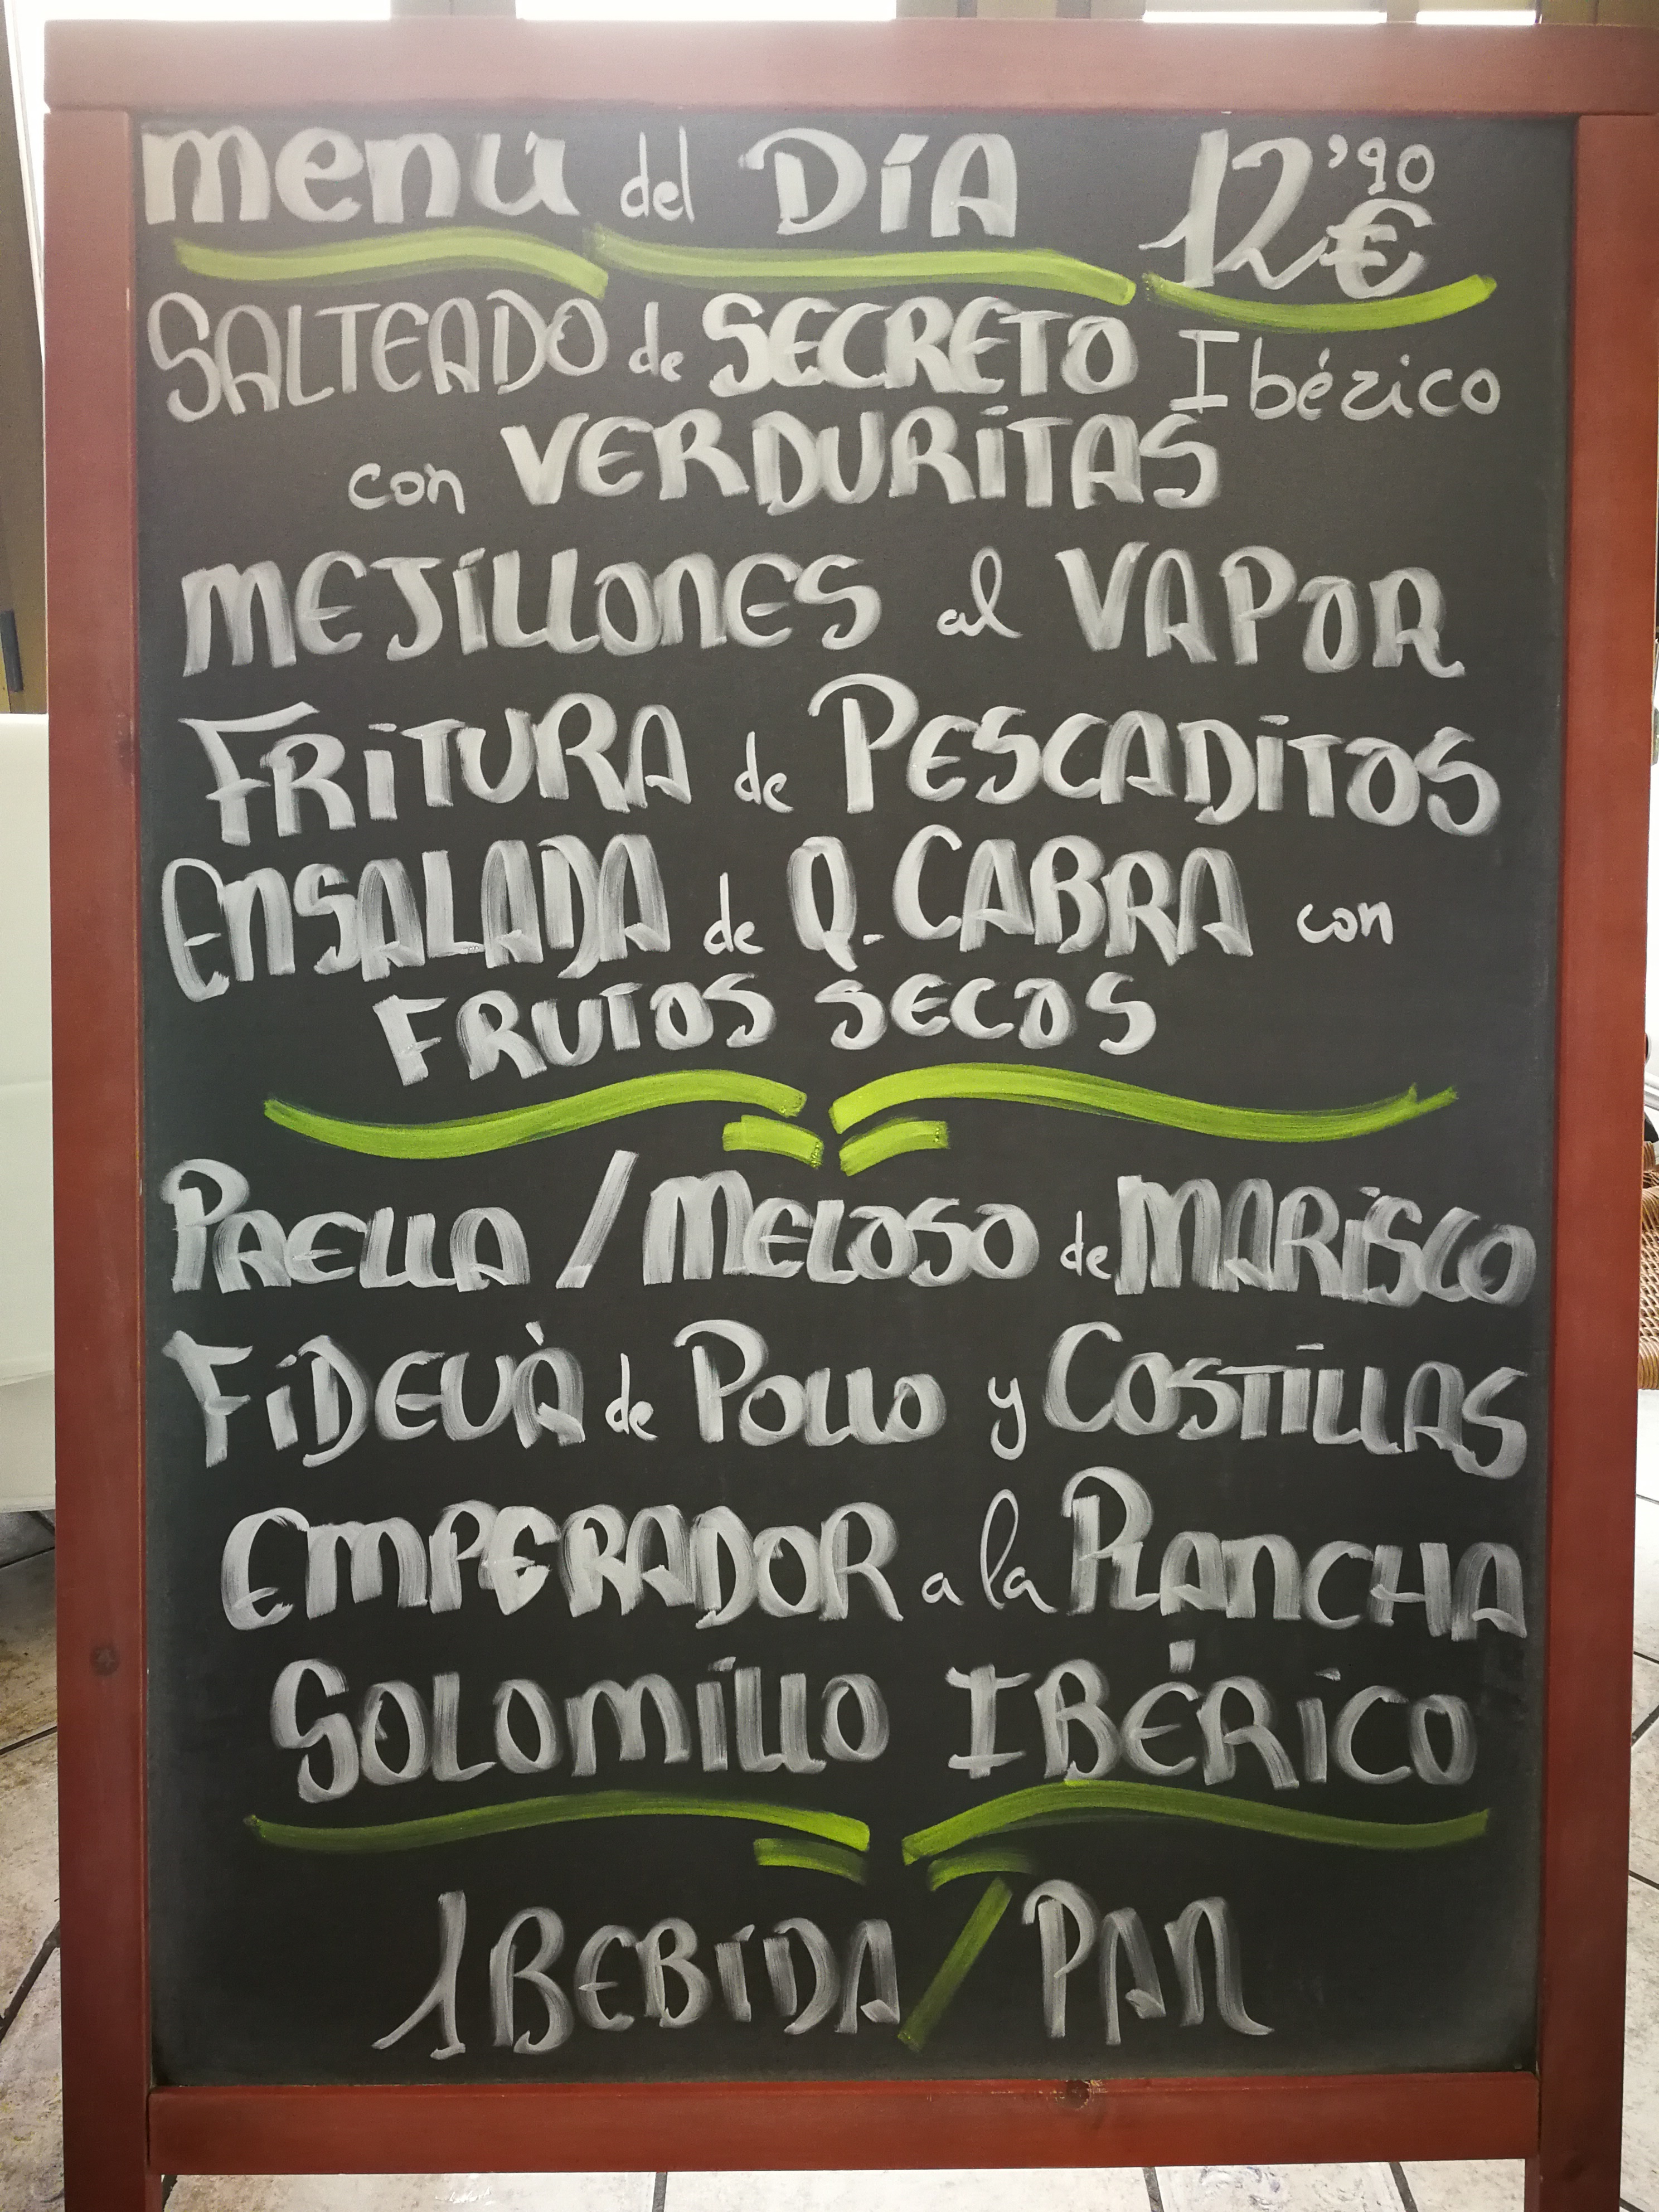 menú del Día 12'90 €
SALTEADO de SECRETO Ibérico
con VERDURITAS
MEJILLONES al VAPOR
FRITURA de PESCADITOS
ENSALADA de Q. CABRA con
FRUTOS SECOS
PAELLA / MELOSO de MARISCO
FIDEUÀ de POLLO y COSTILLAS
EMPERADOR a la PLANCHA
SOLOMILLO IBÉRICO
1 BEBIDA / PAN